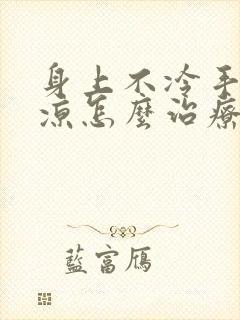 身上不冷手
凉怎麼治療
藍富鴈